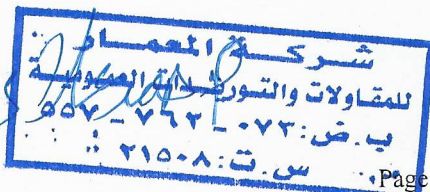 شركة المعماد
للمقاولات والتوريدات العمومية
ب.ض: ٠٧٣ - ٧٦٢ - ٥٥٧
س.ت: ٢١٥٠٨
Page